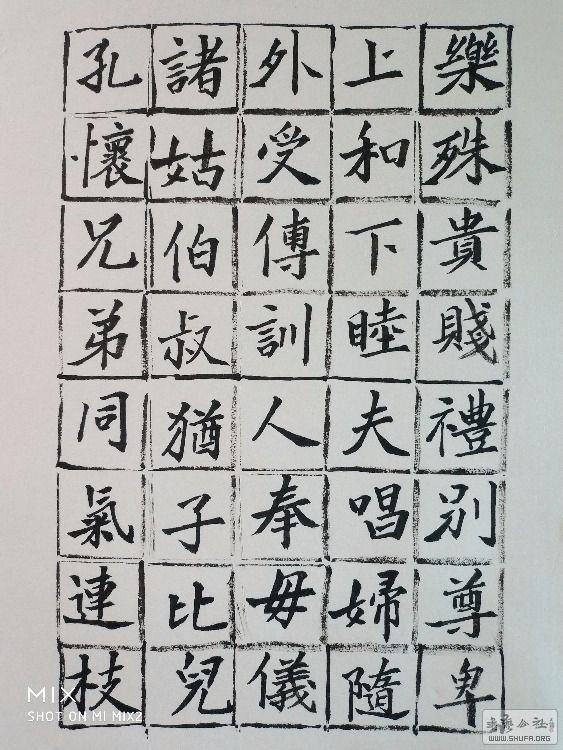 樂殊貴賤禮別尊卑
上和下睦夫唱婦隨
外受傅訓人奉母儀
諸姑伯叔猶子比兒
孔懷兄弟同氣連枝
MIX
SHOT ON MI MIX2
WWW.SHUFA.ORG